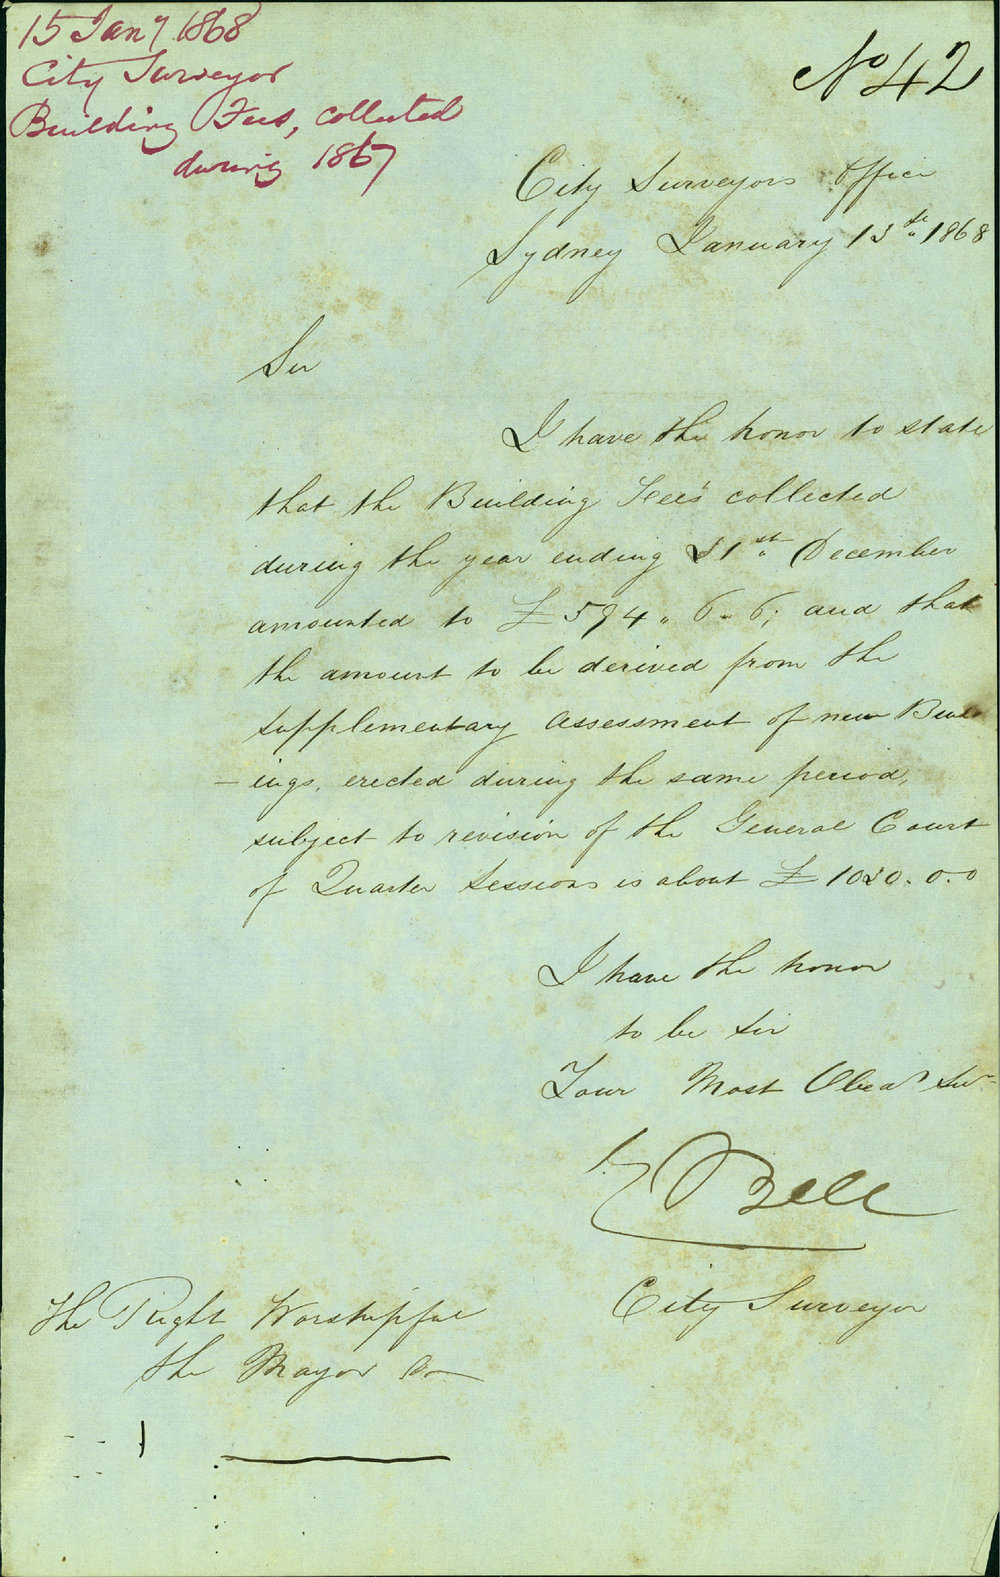 15 Jany 1868
City Surveyor
Building Fees, collected
during 1867
No 42
City Surveyors Office
Sydney January 13th 1868
Sir
I have the honor to state
that the Building Fees collected
during the year ending 31st December
amounted to £594. 6. 6; and that
the amount to be derived from the
supplementary assessment of new Build
-ings, erected during the same period,
subject to revision of the General Court
of Quarter Sessions is about £1020.0.0
I have the honor
to be Sir
Your Most Obedt Svt
E Bell
City Surveyor
The Right Worshipful
the Mayor &c